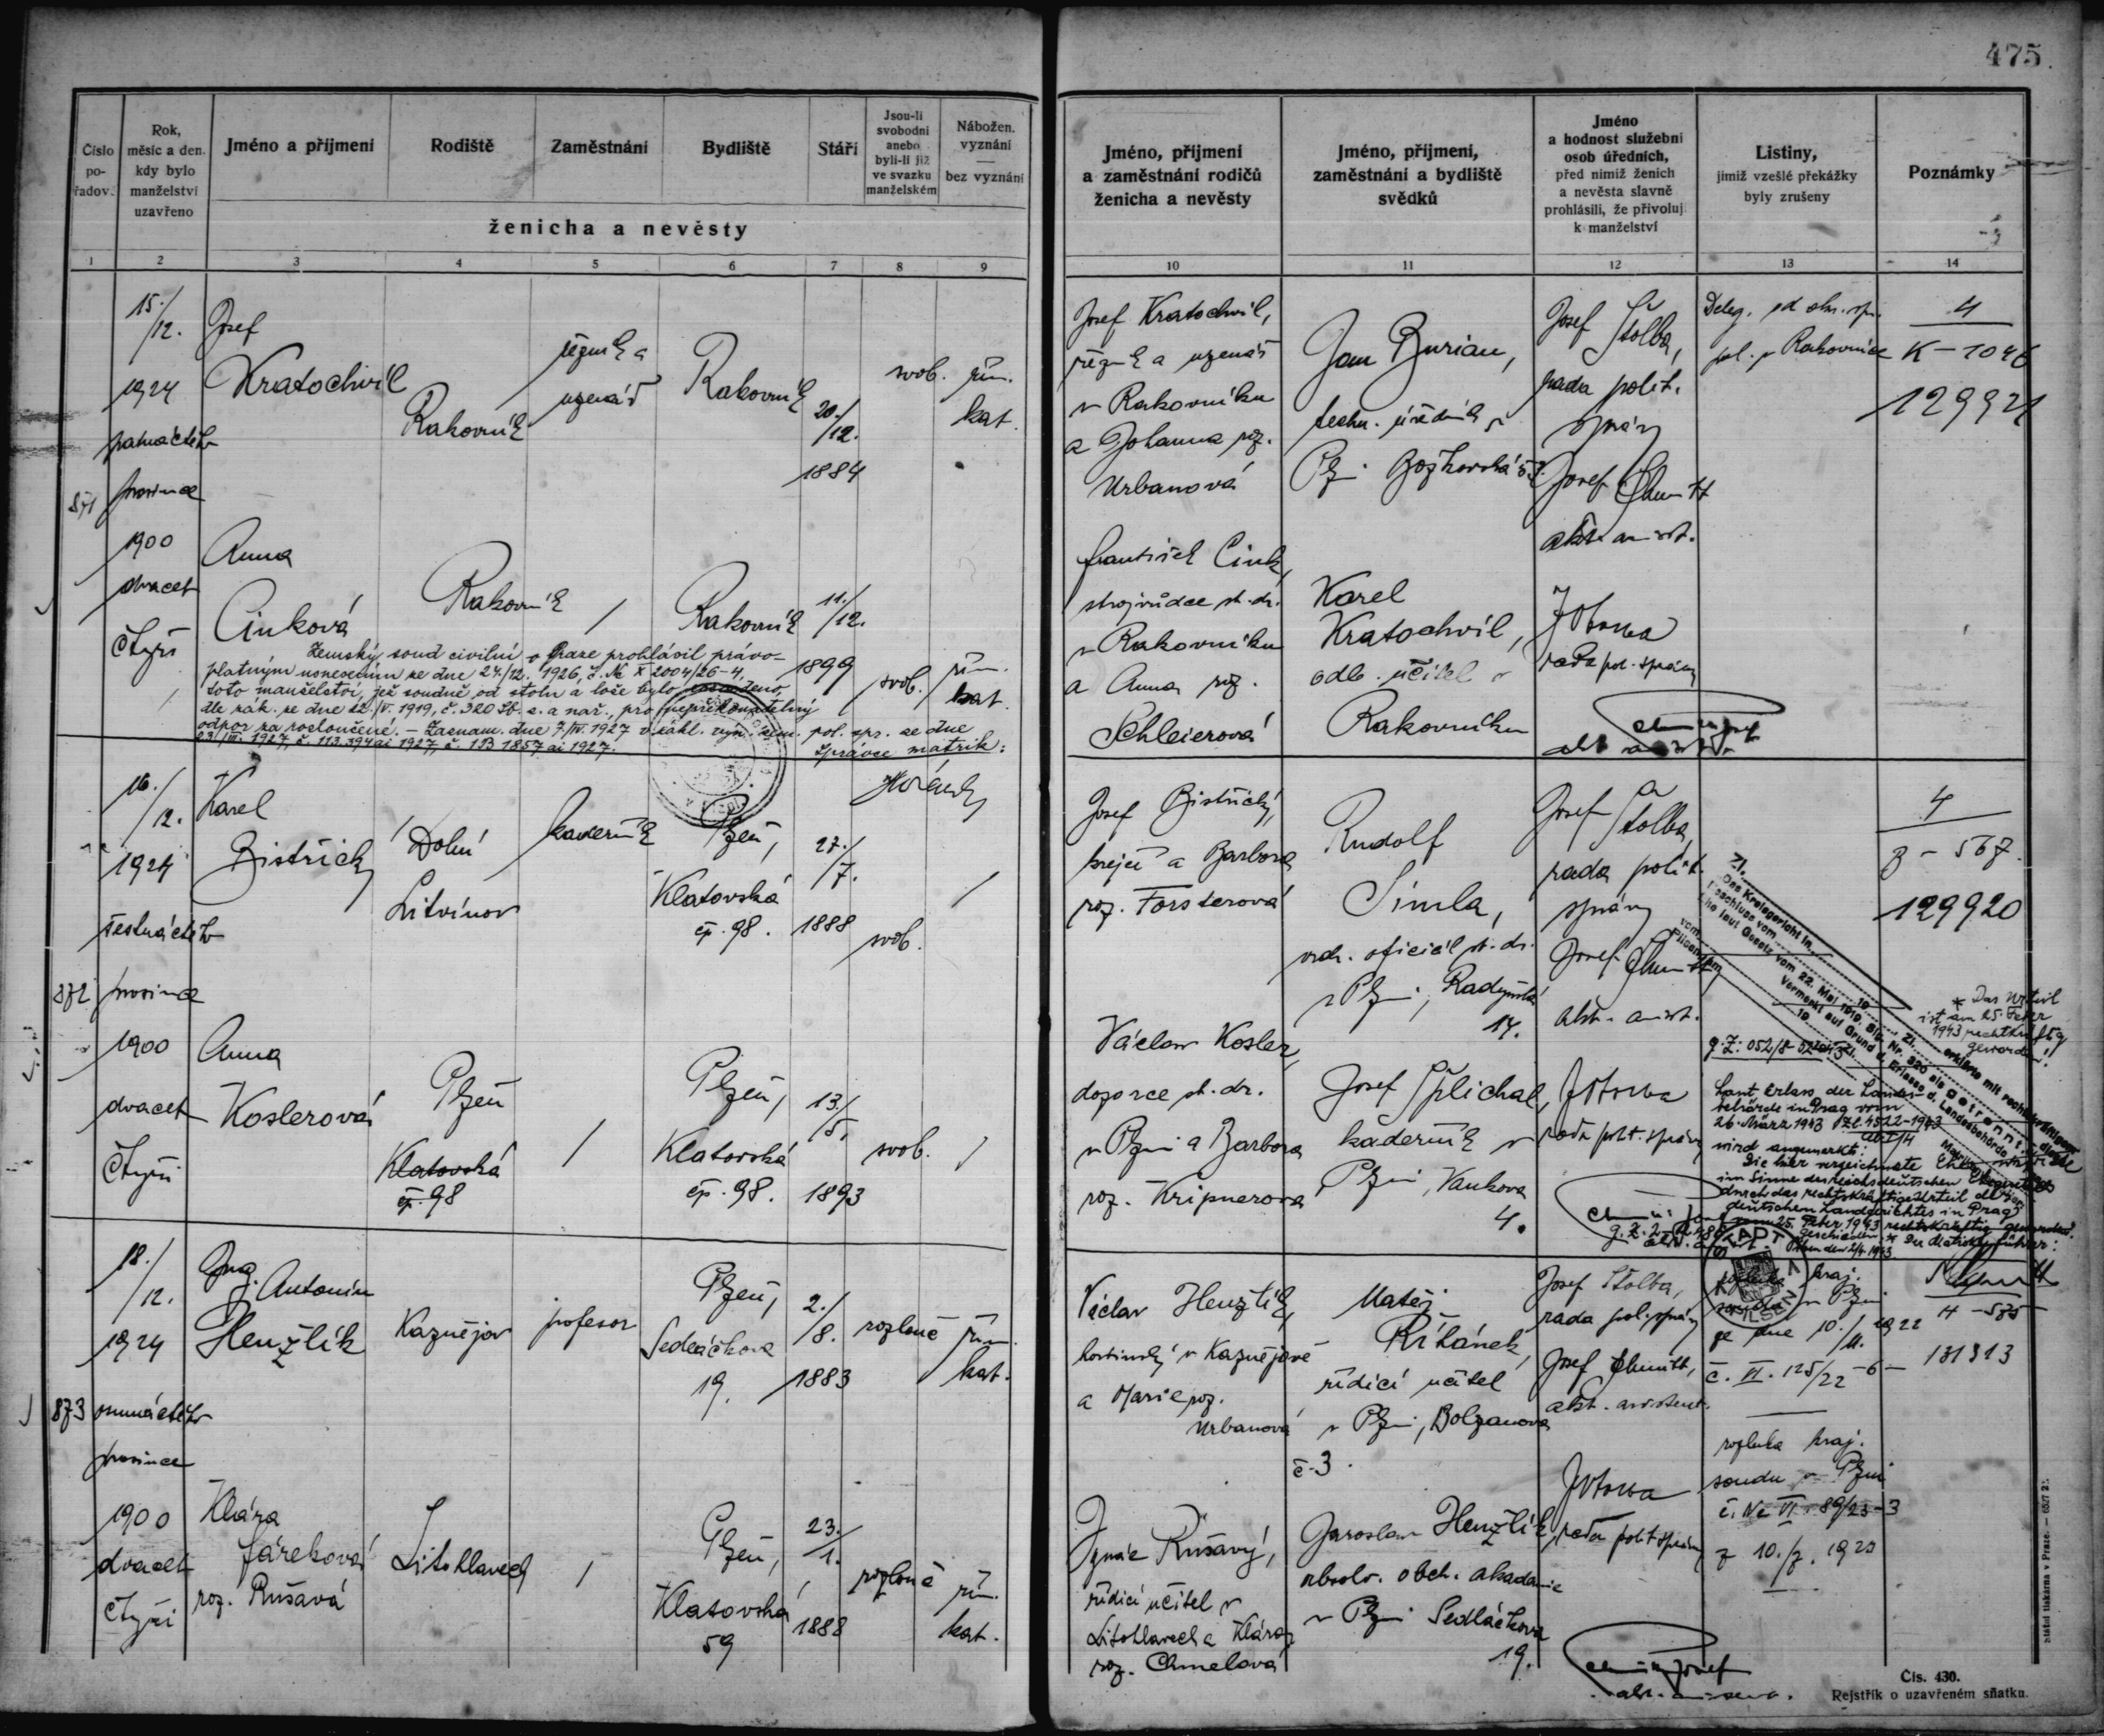 475.
Číslo pořadov.
Rok, měsíc a den. kdy bylo manželství uzavřeno
Jméno a příjmení
Rodiště
Zaměstnání
Bydliště
Stáří
Jsou-li svobodni anebo byli-li již ve svazku manželském
Nábožen. vyznání — bez vyznání
ženicha a nevěsty
Jméno, příjmení a zaměstnání rodičů ženicha a nevěsty
Jméno, příjmení, zaměstnání a bydliště svědků
Jméno a hodnost služební osob úředních, před nimiž ženich a nevěsta slavně prohlásili, že přivolují k manželství
Listiny, jimiž vzešlé překážky byly zrušeny
Poznámky
1 2 3 4 5 6 7 8 9 10 11 12 13 14
871
15./12.
1924
patnáctého
prosince
1900
dvacet
čtyři
Josef
Kratochvíl
Rakovník
řezník a
uzenář
Rakovník
20./12.
1884
svob.
řím.
kat.
Josef Kratochvíl,
řezník a uzenář
v Rakovníku
a Johanna roz.
Urbanová
Jan Burian,
techn. úředník v
Plzni Božkovská
Josef Štolba,
rada polit.
správy
Josef Chmitt
akt. assist.
Deleg. od okr. spr.
pol. v Rakovníce
4
K-1046
129921
Anna
Cinková
Rakovník
/
Rakovník
11./12.
1899
svob.
řím.
kat.
František Cink,
strojvůdce st. dr.
v Rakovníku
a Anna roz.
Schleierová
Karel
Kratochvíl,
odb. učitel v
Rakovníku
rada pol. správy
Zemský soud civilní v Praze prohlásil právo-
platným usnesením ze dne 24./12. 1926, č. Nc X 2004/26-4.
toto manželství, jež soudně od stolu a lože bylo rozvedeno,
dle zák. ze dne 22./V. 1919, č. 320 Sb. z. a nař., pro nepřekonatelný
odpor za rozloučené. – Zaznam. dne 7./IV. 1927 v základ. výn. zem. pol. spr. ze dne
23./III. 1927, č. 113.394 ai 1927, č. 1B 1857 ai 1927.
Správce matrik:
872
16./12.
1924
šestnáctého
prosince
1900
dvacet
čtyři
Karel
Bistřický
Dolní
Litvínov
kaderník
Plzeň,
Klatovská
čp. 98.
27./7.
1888
svob.
/
Josef Bistřický,
krejčí a Barbora
roz. Forsterová
Rudolf
Simla,
vrch. oficiál st. dr.
v Plzni, Radyňská
17.
Josef Štolba,
rada polit.
správy
Josef Chmitt
akt. assist.
4
B-567.
129920
Das Kreisgericht in
Beschluss vom 19 Zl. erklärte mit rechtskräftigem
Ehe laut Gesetz vom 22. Mai 1919, Slg. Nr. 320 als getrennt. diese
Vermerkt auf Grund d. Erlasse d. Landesbehörde
* Das Urteil
ist am 25. Feber
1943 rechtskräftig
geworden!
Anna
Koslerová
Plzeň
Klatovská
čp. 98
/
Plzeň,
Klatovská
čp. 98.
13./5.
1893
svob.
/
Václav Kosler,
dozorce st. dr.
v Plzni a Barbora
roz. Kripnerova
Josef Šplichal,
kaderník v
Plzni, Vaňkova
4.
rada polit. správy
Laut Erlass der Landes-
behörde in Prag vom
26. März 1943 Zl. 4522-1943
wird angemerkt:
Die hier verzeichnete Ehe wurde
im Sinne des reichsdeutschen Ehegesetzes
durch das rechtskräftige Urteil des
deutschen Landgerichtes in Prag
vom 25. Feber 1943 rechtskräftig geworden.
geschieden. * Der Matrikenführer:
STADT PILSEN
873
18./12.
1924
osmnáctého
prosince
1900
dvacet
čtyři
Ing. Antonín
Henzlík
Kaznějov
profesor
Plzeň,
Sedláčkova
19.
2./8.
1883
rozloučě
řím.
kat.
Václav Henzlík,
hostinský v Kaznějově
a Marie roz.
Urbanová
Matěj
Říhánek,
řídící učitel
v Plzni, Bolzanova
č. 3.
Josef Štolba,
rada pol. správy
Josef Chmitt,
akt. assistent.
rozluka kraj.
soudu v Plzni
ze dne 10./11. 1922
č. VI. 125/22-6-
H-535
131313
Klára
Járeková
roz. Rušavá
Litohlavech
/
Plzeň,
Klatovská
59
23./1.
1888
rozloučě
řím.
kat.
Ignác Rušavý,
řídící učitel v
Litohlavech a Klára
roz. Chmelová
Jaroslav Henzlík,
absolv. obch. akademie
v Plzni Sedláčkova
19.
rada polit. správy
rozluka kraj.
soudu v Plzni
č. Nc VI. 89/23-3
z 10./7. 1923
Čís. 430.
Rejstřík o uzavřeném sňatku.
Státní tiskárna v Praze.